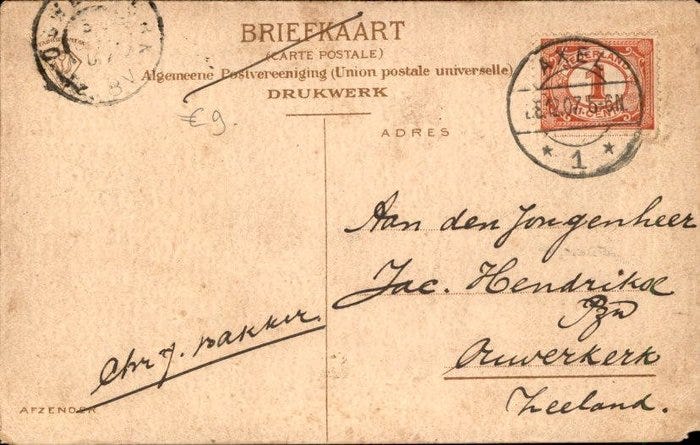 BRIEFKAART
(CARTE POSTALE)
Algemeene Postvereeniging (Union postale universelle)
DRUKWERK
€9.
ADRES
AXEL
8.12.07. 5-6N
* 1 *
NEDERLAND
1
CENT
Aan den Jongenheer
Jac. Hendrikse
Pzn
Ouwerkerk
Zeeland.
Chr J. Bakker.
AFZENDER